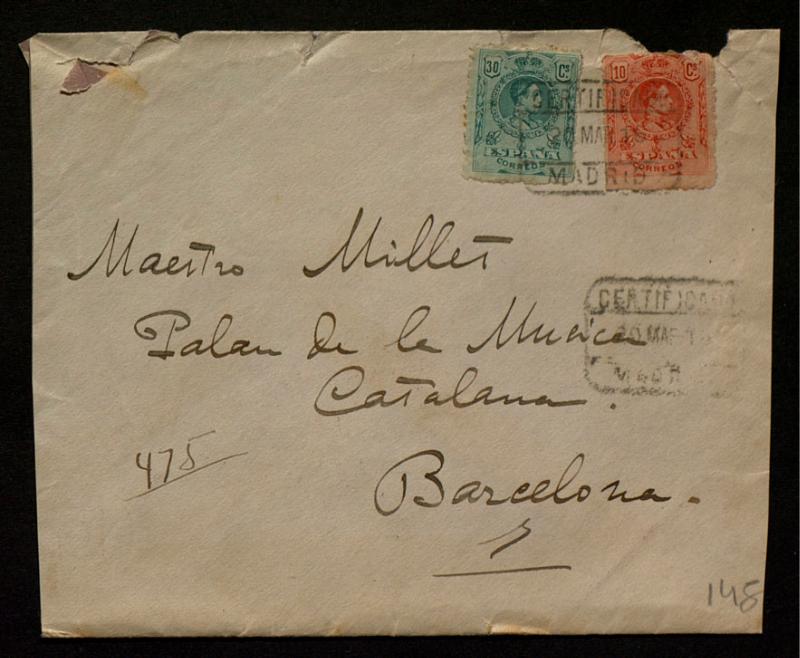 30 Cs
ESPAÑA
CORREOS
10 Cs
ESPAÑA
CORREOS
CERTIFICADO
20 MAR 15
MADRID
Maestro Millet
Palau de la Musica
Catalana.
Barcelona.
475
CERTIFICADO
20 MAR 15
MADRID
148